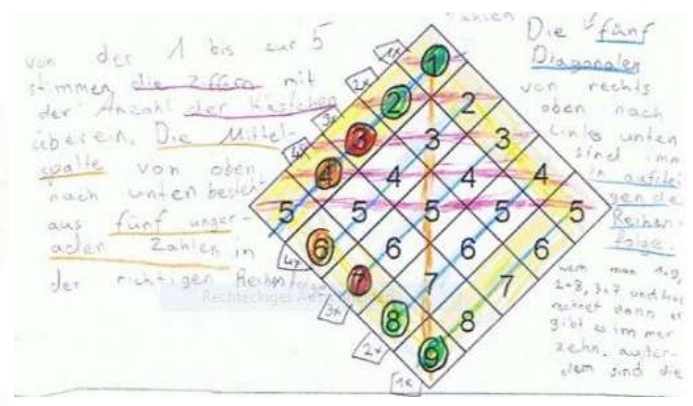 Zahlen
von der 1 bis zur 5
stimmen die Ziffern mit
der Anzahl der Kästchen
überein. Die Mittel-
spalte von oben
nach unten besteht
aus fünf unger-
aden Zahlen in
der richtigen Reihenfolge.
Rechteckiges
1x
2x
3x
4x
4x
3x
2x
1x
1
2 2
3 3 3
4 4 4 4
5 5 5 5 5
6 6 6 6
7 7 7
8 8
9
Die fünf
Diagonalen
von rechts
oben nach
links unten
sind imm
in aufstei
gender
Reihen-
folge.
wenn man 1+9,
2+8, 3+7 und
rechnet dann er
gibt es immer
zehn. außer-
dem sind die